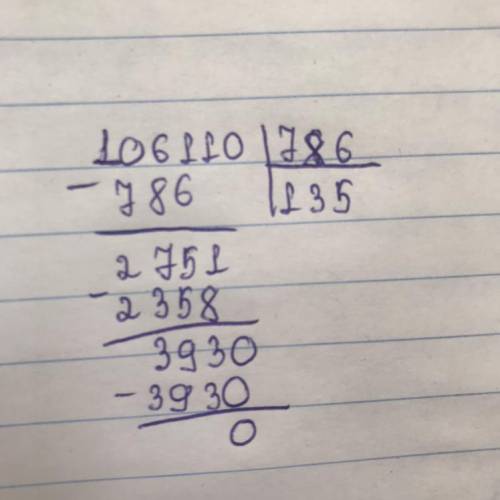 106110 | 786
- 786 | 135
2751
- 2358
3930
- 3930
0